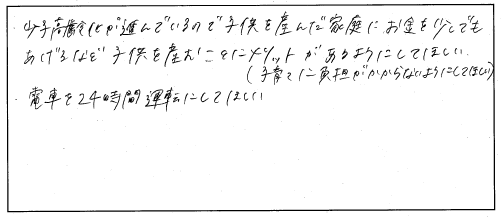 ・少子高齢化が進んでいるので子供を産んだ家庭にお金を少しでも
あげるなど子供を産むことにメリットがあるようにしてほしい。
(子育てに負担がかからないようにしてほしい)
・電車を24時間運転にしてほしい